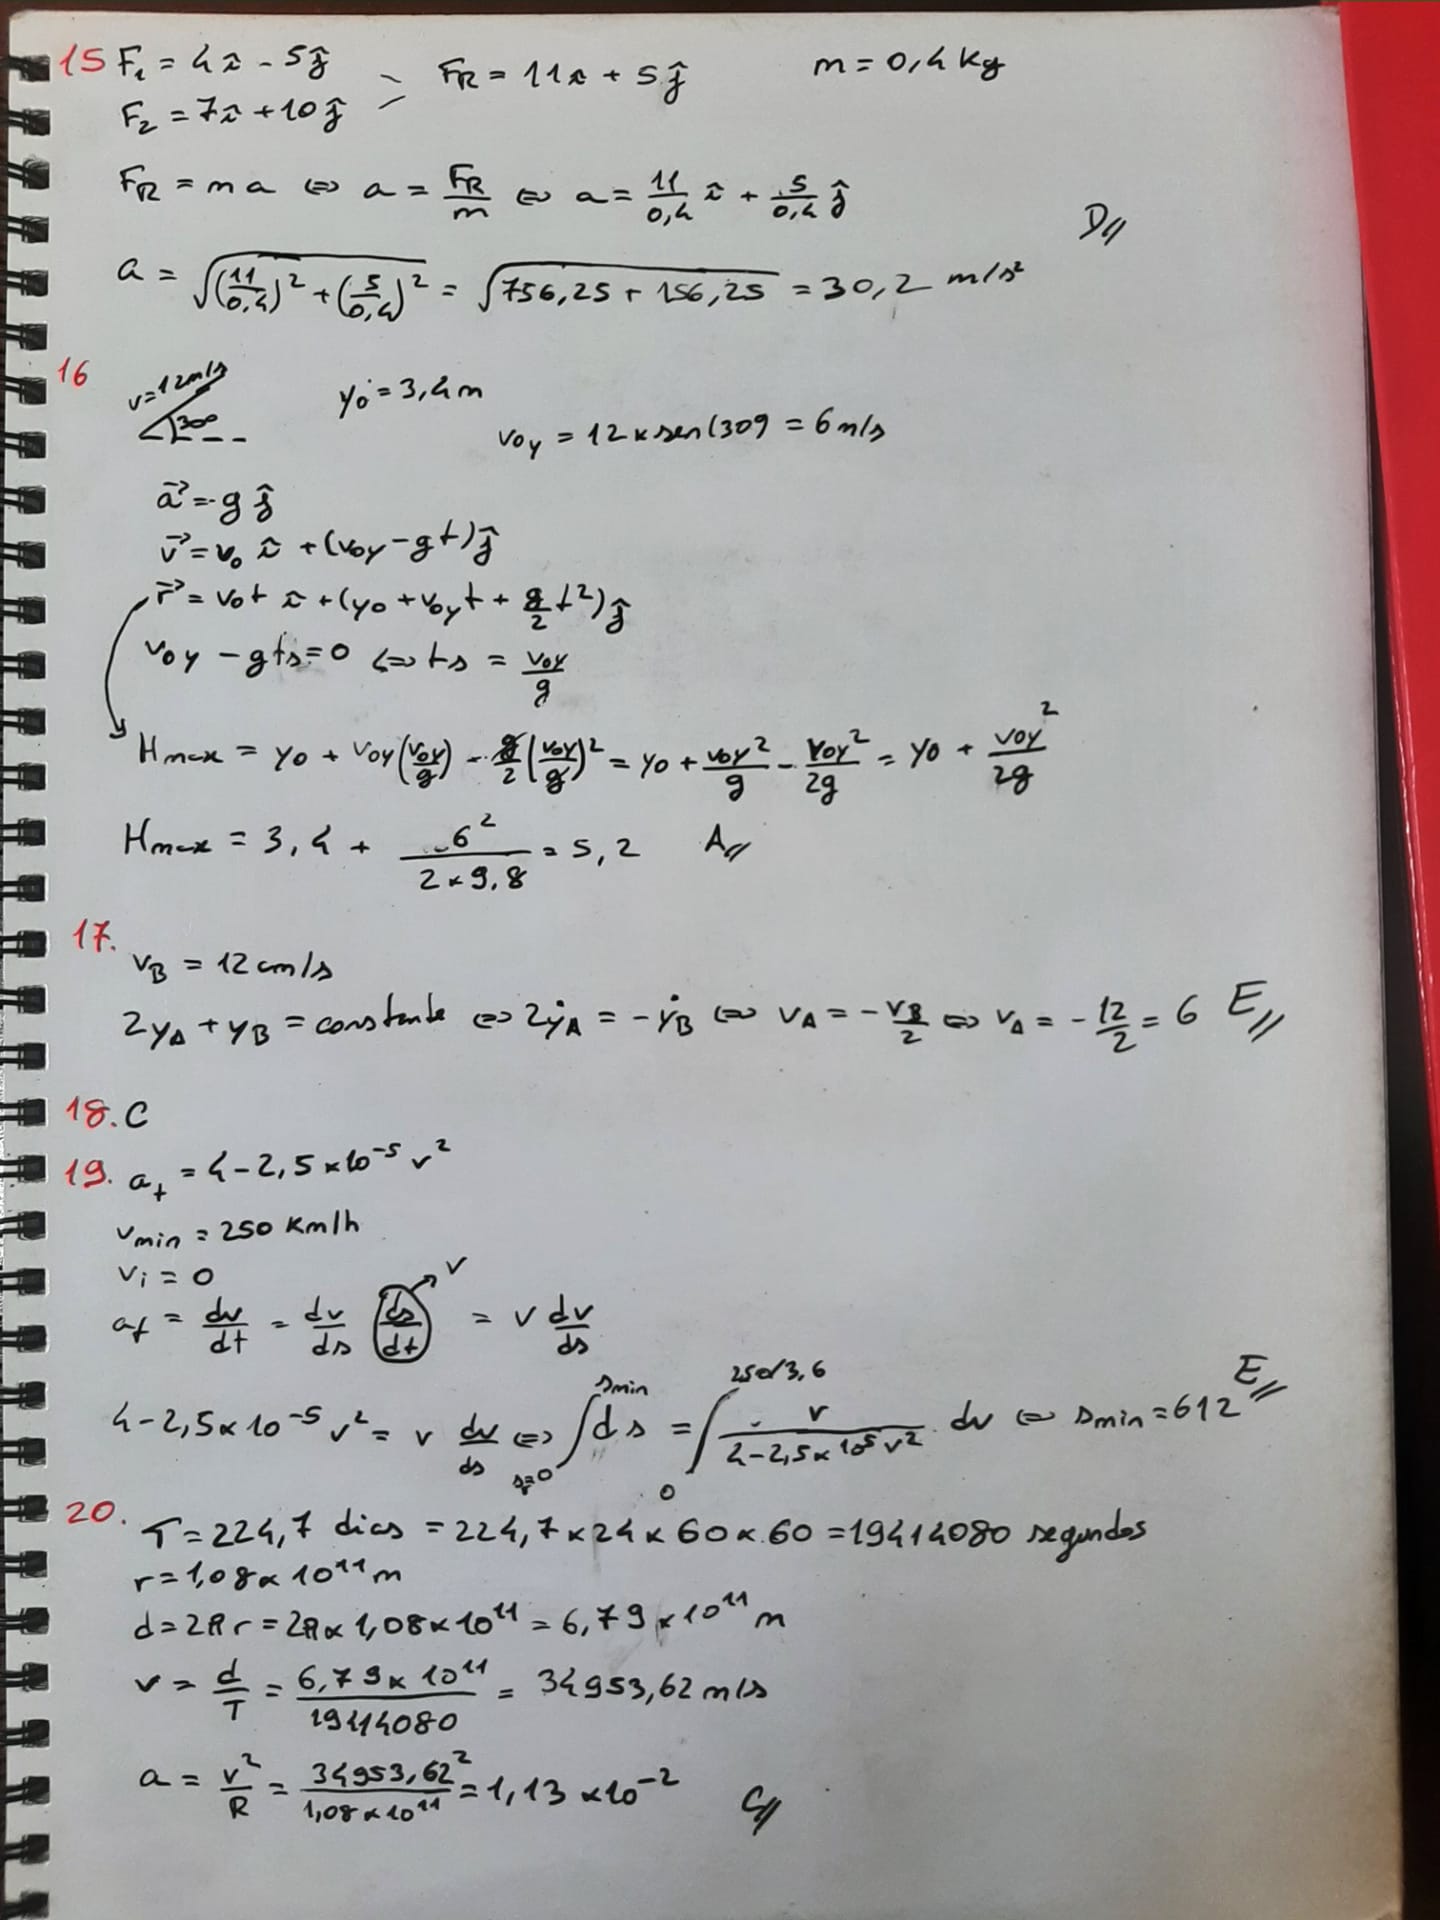 15 F₁ = 4î - 5ĵ > F_R = 11î + 5ĵ m = 0,4 kg
F₂ = 7î + 10ĵ
F_R = m a ⇔ a = F_R/m ⇔ a = 11/0,4 î + 5/0,4 ĵ
D//
a = √((11/0,4)² + (5/0,4)²) = √(756,25 + 156,25) = 30,2 m/s²
16 v=12m/s 30° y₀ = 3,4m
v₀y = 12 × sen(30º) = 6 m/s
a⃗ = -g ĵ
v⃗ = v₀ î + (v₀y - gt) ĵ
r⃗ = v₀t î + (y₀ + v₀yt + g/2 t²) ĵ
v₀y - gts = 0 ⇔ ts = v₀y/g
Hmax = y₀ + v₀y(v₀y/g) - g/2 (v₀y/g)² = y₀ + v₀y²/g - v₀y²/2g = y₀ + v₀y²/2g
Hmax = 3,4 + 6²/(2×9,8) = 5,2 A//
17.
v_B = 12 cm/s
2y_A + y_B = constante ⇔ 2ẏ_A = -ẏ_B ⇔ v_A = -v_B/2 ⇔ v_A = -12/2 = 6 E//
18. C
19. a_t = 4 - 2,5 × 10⁻⁵ v²
v_min = 250 Km/h
v_i = 0
a_t = dv/dt = dv/ds ds/dt → v = v dv/ds
4 - 2,5 × 10⁻⁵ v² = v dv/ds ⇔ ∫_{s=0}^{smin} ds = ∫_0^{250/3,6} v/(4 - 2,5 × 10⁵ v²) dv ⇔ smin = 612 E//
20. T = 224,7 dias = 224,7 × 24 × 60 × 60 = 19414080 segundos
r = 1,08 × 10¹¹ m
d = 2πr = 2π × 1,08 × 10¹¹ = 6,79 × 10¹¹ m
v = d/T = 6,79 × 10¹¹/19414080 = 34953,62 m/s
a = v²/R = 34953,62²/1,08 × 10¹¹ = 1,13 × 10⁻² C//